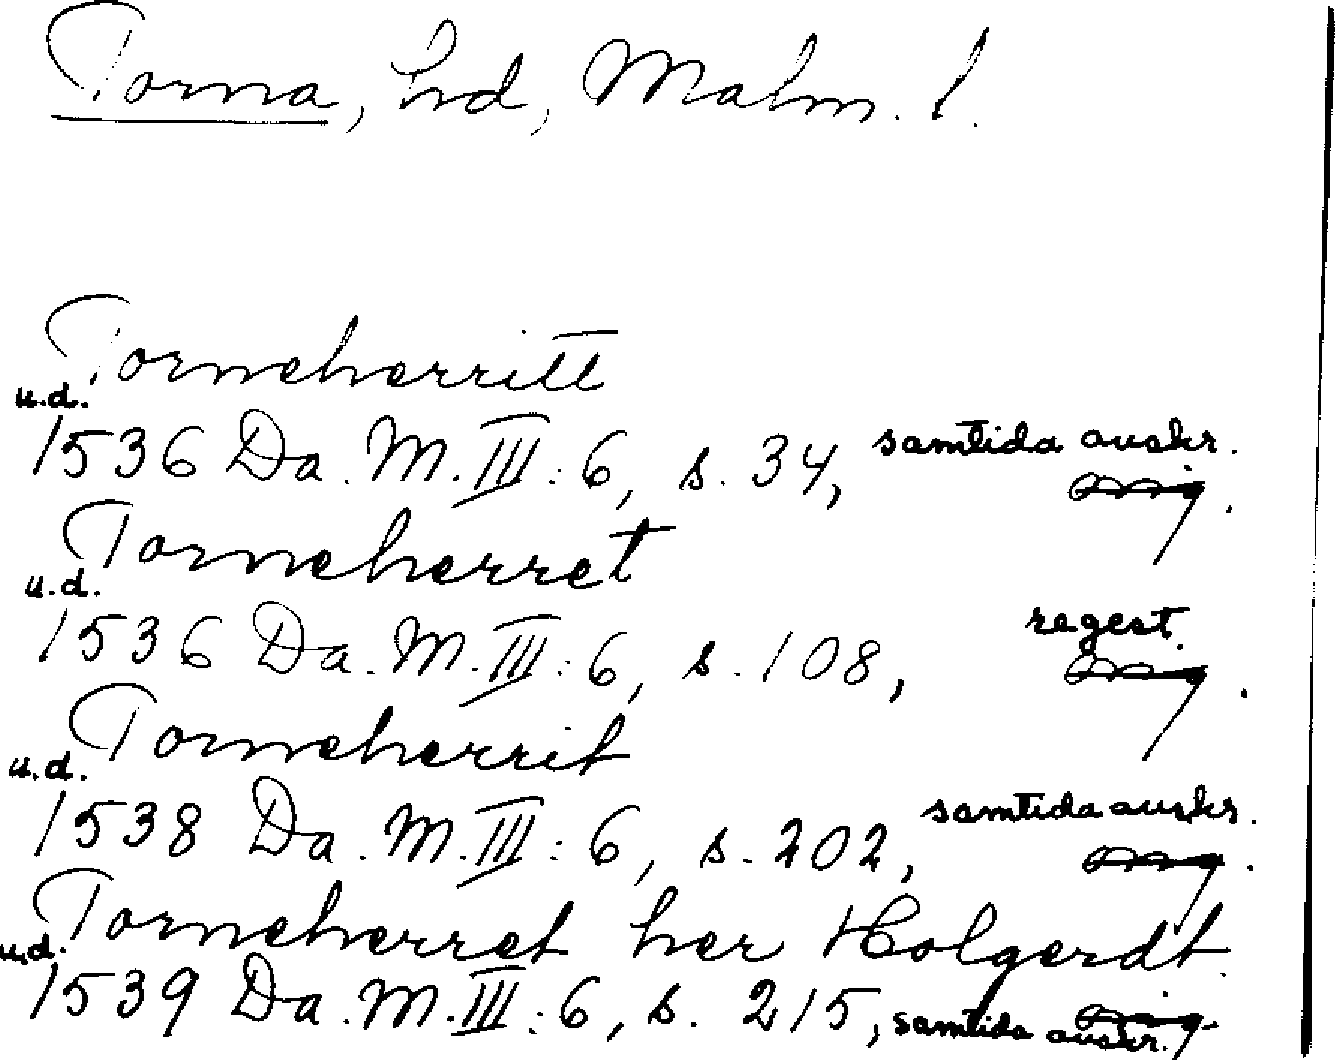 Torna, hd, Malm. l.
Torneherritt
u.d.
1536 Da. M. III: 6, s. 34, samtida avskr.
Torneherret
u.d.
1536 Da. M. III: 6, s. 108, regest.
Torneherrit
u.d.
1538 Da. M. III: 6, s. 202, samtida avskr.
Torneherret her Holgerdt
u.d.
1539 Da. M. III: 6, s. 215, samtida avskr.